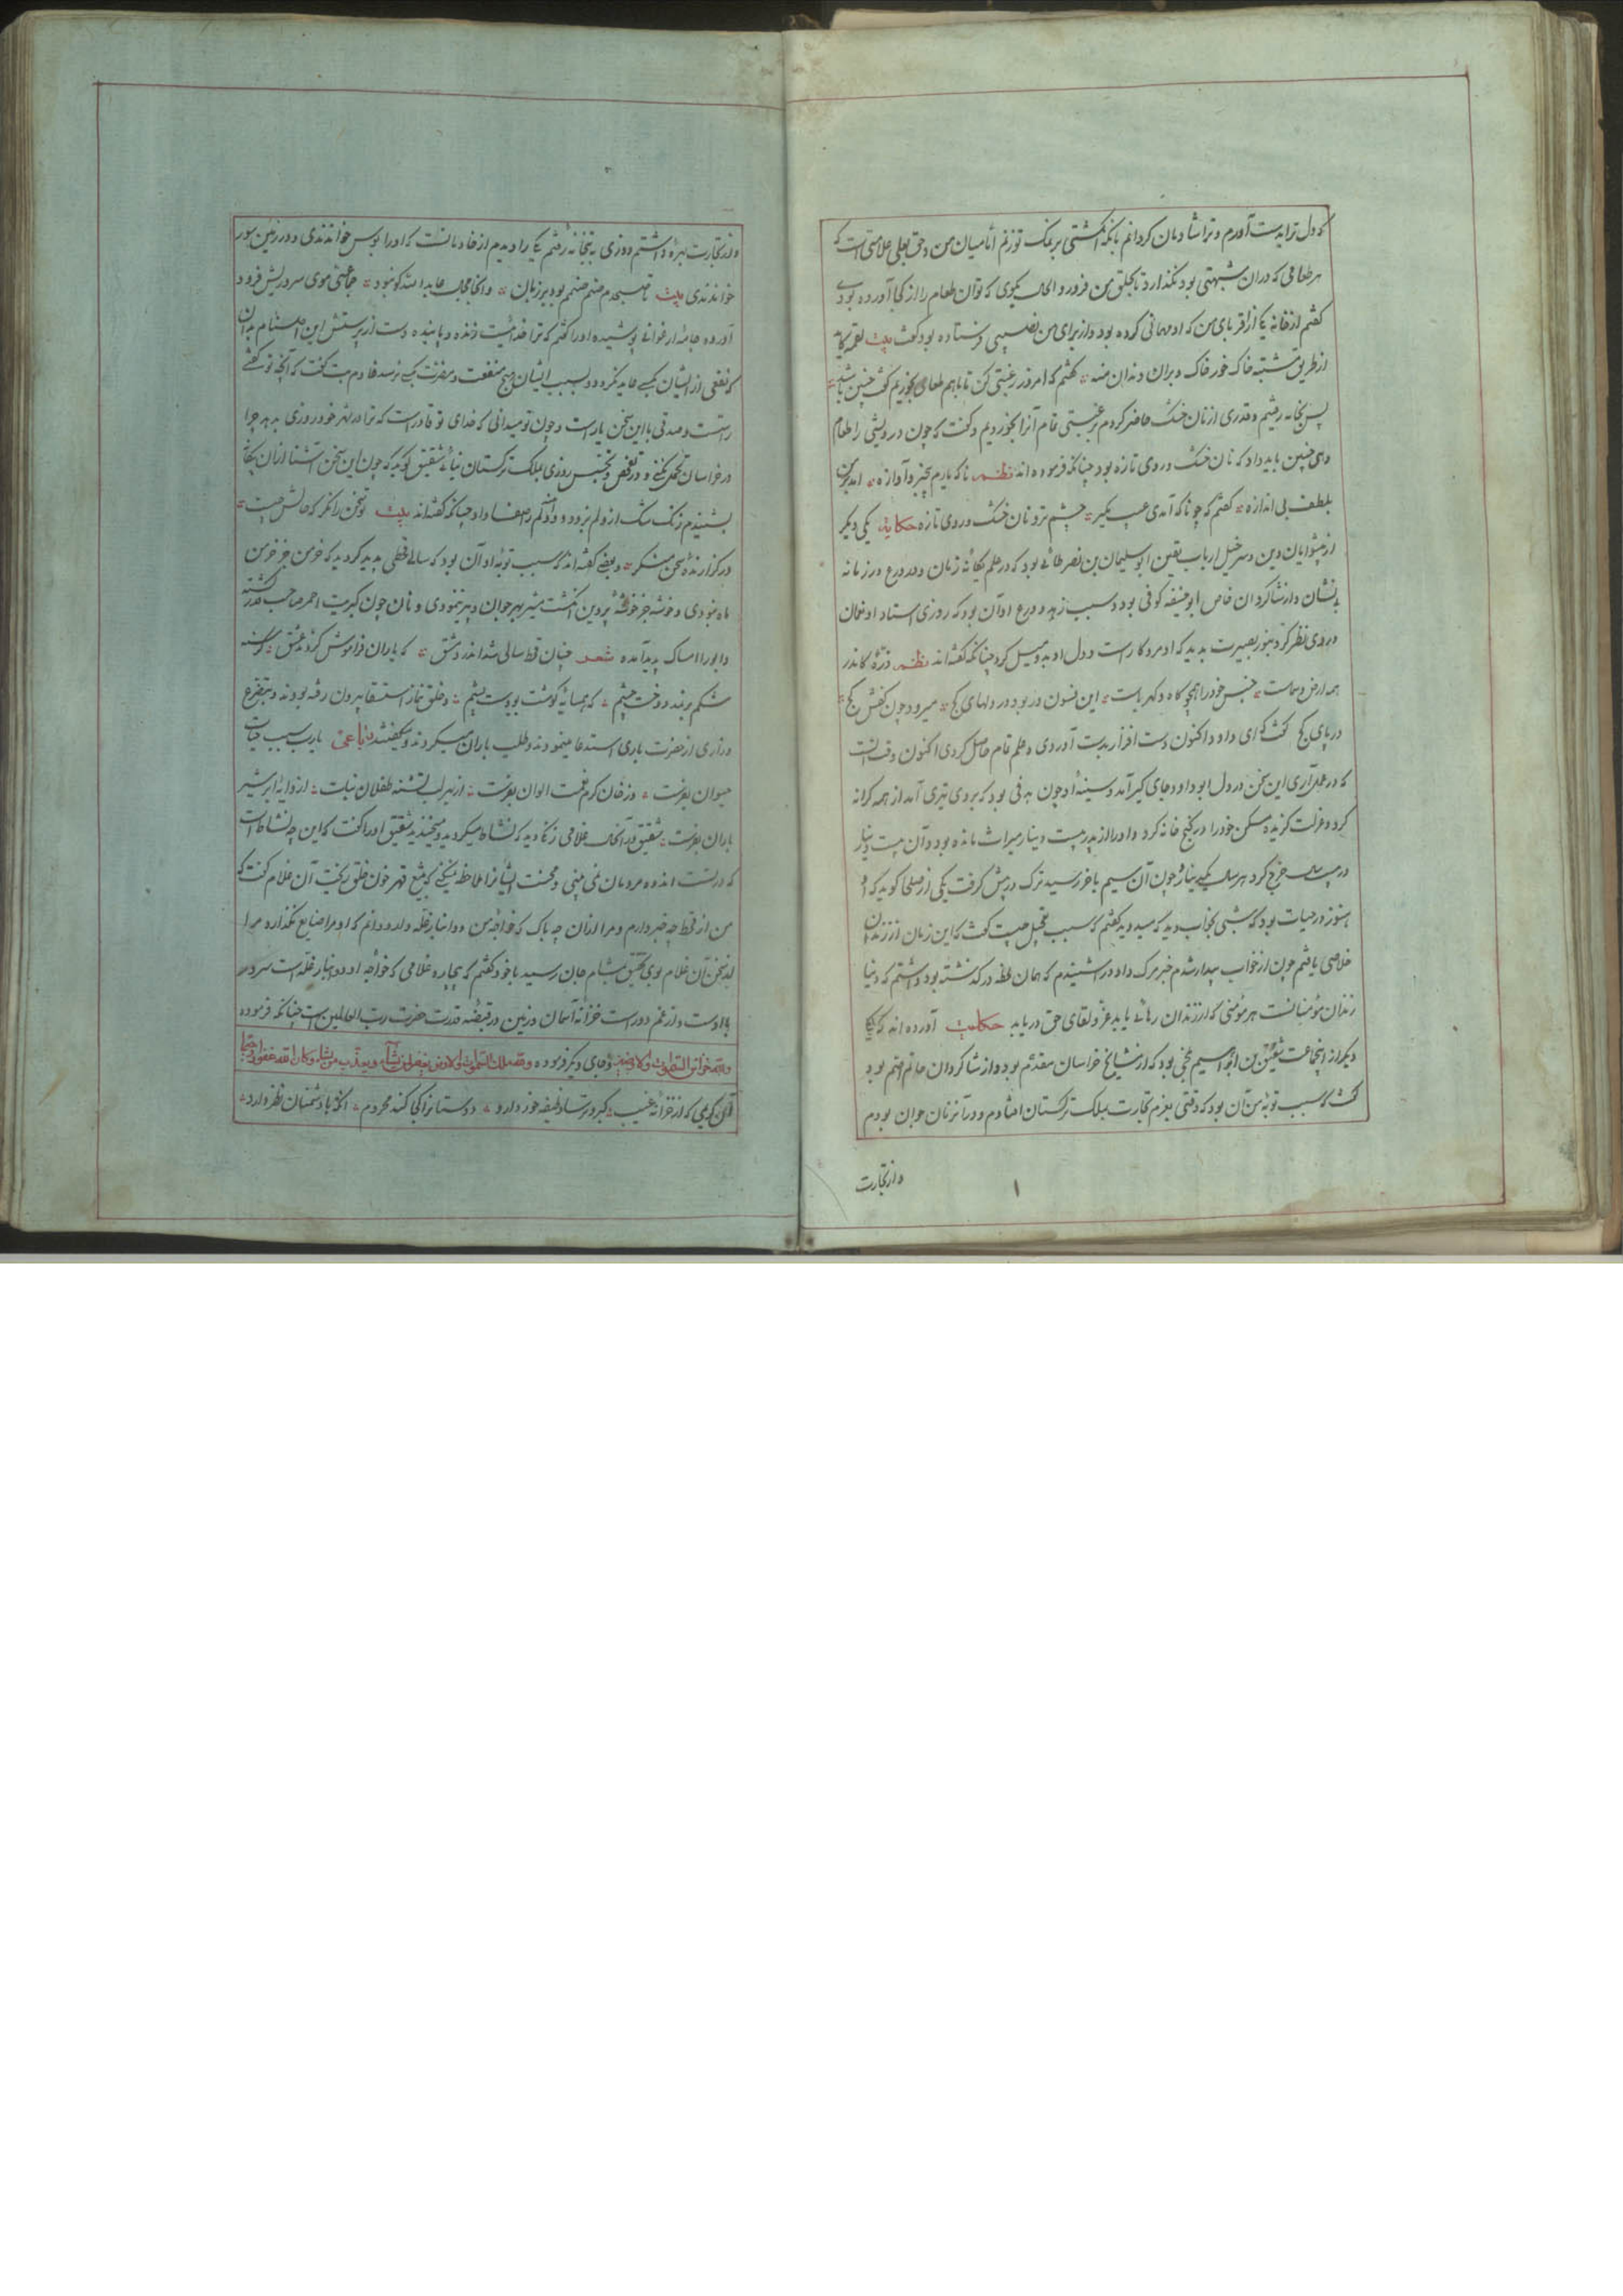 که دل ترا بدست آورم و ترا شادمان کردانم بانکه انکشتی بر نمک تو زنم اما میان من و حق تعالی علامتی است که
هر طعامی که در ان شبهتی بود نکذارد تا بحلق من فرو رود الحال بکوی که تو آن طعام را از کجا آورده بودی
کفتم از خانه یکی از اقربای من که او مهمانی کرده بود و از برای من نصیبی فرستاده بود کفت بیت لقمه کاید
از طریق مشتبه خاک خور خاک و بران دندان منه کفتم که امروز رغبتی کن تا باهم طعامی بخوریم کفت چنین باشد
پس بخانه رفتیم و قدری از نان خشک حاضر کردم برغبتی تمام آنرا بخوردیم و کفت که چون درویشی را طعام
دهی چنین باید داد که نان خشک و روی تازه بود چنانکه فرموده اند نظم ناکه یارم بیخبر و آوازه آمد بر من
بلطف بی اندازه کفتم که چو ناکه آمدی عیب مکیر چشم تر و نان خشک و روی تازه حکایة یکی دیکر
از پیشوایان دین و سرخیل ارباب یقین ابو سلیمان بن نصر طائی بود که در علم یکانهٔ زمان و در ورع در زمانه
نشان و از شاکردان خاص ابو حنیفه کوفی بود و سبب زهد و ورع او آن بود که روزی استاد او نعمان
در وی نظر کرد بنور بصیرت بدید که او مرد کار است و دل او بدو میل کرد چنانکه کفته اند نظم ذرهٔ کاندر
همه ارض و سماست جنس خود را همچو کاه و کهرباست این فسون دیو در دلهای کج میرود چون کفش کج
در پای کج کفت که ای داود اکنون دست افزار بدست آوردی و علم تمام حاصل کردی اکنون وقت انست
که در عمل آری این سخن در دل ابو داود جای کیر آمد و سینهٔ او چون هدفی بود که بر وی تیری آمد از همه کرانه
کرد و عزلت کزیده مسکن خود را در کنج خانه کرد و او را از پدر بیست دینار میراث مانده بود و آن بیست دینار
در بیست سال خرج کرد هر سال یکی دینار و چون آن سیم باخر رسید ترک در پیش کرفت یکی از صلحا کوید که او
هنوز در حیات بود که شبی بخواب دید که میدوید کفتم که سبب تعجیل چیست کفت که این زمان از زندان
خلاصی یافتم چون از خواب بیدار شدم خبر مرک داود شنیدم که همان لحظه در کذشته بود دانستم که دنیا
زندان مؤمنانست هر مؤمنی که از زندان رهائی یابد عز و لقای حق دریابد حکایت آورده اند که یکی
دیکر از اینجماعت شقیق بن ابراهیم بلخی بود که از مشایخ خراسان مقدم بود و از شاکردان حاتم اصم بود
کفت که سبب توبهٔ من آن بود که وقتی بعزم تجارت بملک ترکستان افتادم و در آنزمان جوان بودم
و از تجارت
۱
و از تجارت بهره داشتم روزی به بتخانه رفتم یکی را دیدم از خادمان بت که او را بوس خواندندی و در زمین سور
خواندندی بیت تا صبحدم صنم صنم بود بر زبان و انجا مجال عابد الله کو نبود جماعتی موی سر و ریش فرود
آورده جامهٔ ارغوانی پوشیده او را کفتم که ترا خدائیست زنده و پاینده دست از پرستش این اصنام بدار
که نفعی از ایشان بکسی عاید نکردد و بسبب ایشان هیچ منفعت و مضرت بکسی نرسد خادم بت کفت که آنچه تو کفتی
راست و صدقی با این سخن یار است و چون تو میدانی که خدای تو قادر است که ترا در شهر خود روزی بدهد چرا
در خراسان تحمل نکنی و در تفحص و تجسس روزی بملک ترکستان نیائی شقیق کوید که چون این سخن آشنا از ان بیکانه
بشنیدم زنک شک از دلم بزدود و داد دلم صفا داد چنانکه کفته اند بیت تو سخن را نکر که حالش چیست
در کزارندهٔ سخن منکر و بعضی کفته اند که سبب توبهٔ او آن بود که سالی قحطی بدید کردید که خرمن جز خرمن
ماه نبودی و خوشه جز خوشهٔ پروین انکشت مشیر بهر جوان و پیر ننمودی و نان چون کبریت احمر صاحب قدر کشته
و ابر را امساک پدید آمده شعر چنان قحط سالی شد اندر دمشق که یاران فراموش کردند عشق کرسنه
شکم بر بند و دوخت چشم که همسایهٔ کوشت بود پشم و خلق بنماز استسقا بیرون رفته بودند و بتضرع
و زاری از حضرت باری استدعا مینمودند و طلب باران میکردند و میکفتند رباعی یارب سبب حیات
حیوان بفرست وز خوان کرم نعمت الوان بفرست از بهر لب تشنه طفلان نبات از دایهٔ ابر شیر
باران بفرست شقیق در آنحال غلامی زنکی دید که نشاط میکردید و میخندید شقیق او را کفت که این چه نشاط است
که در تست اندوه مردمان نمی بینی و محنت ایشانرا ملاحظه نمیکنی که تیغ قهر خون خلق ریخت آن غلام کفت که
من از قحط چه خبر دارم و مرا از ان چه باک که خواجهٔ من دو انبار غله دارد و دانم که او مرا ضایع نکذارد مرا
از سخن آن غلام بوی تحقیق بمشام جان رسید با خود کفتم که بیچاره غلامی که خواجهٔ او دو انبار غله است سرور
با اوست و از غم دور است خزانهٔ آسمان و زمین در قبضهٔ قدرت حضرت رب العالمین است چنانکه فرموده
ولله خزائن السموات والارض و جای دیکر فرموده ولله ملک السموات والارض یغفر لمن یشاء و یعذب من یشاء و کان الله غفورا رحیما
ای کریمی که از خزانه غیب کبر و ترسا وظیفه خور داری دوستانرا کجا کنی محروم تو که با دشمنان نظر داری